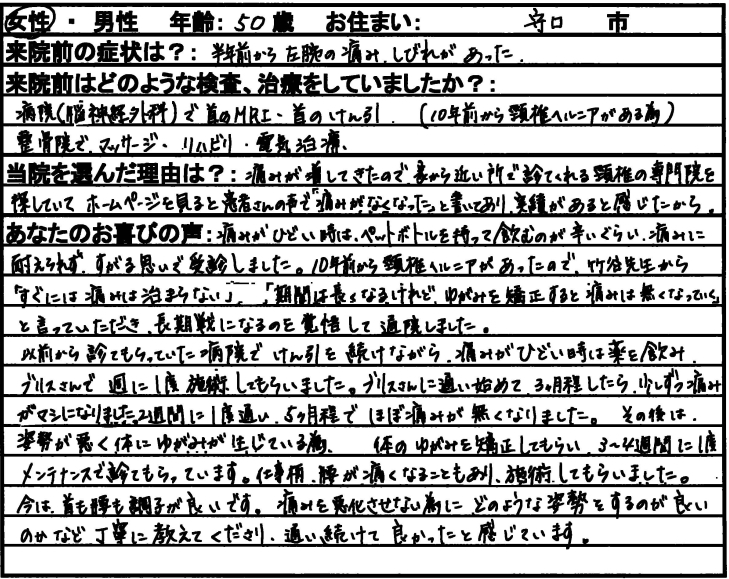 女性 ・ 男性 年齢: 50 歳 お住まい: 守口 市
来院前の症状は?: 半年前から左腕の痛み、しびれがあった。
来院前はどのような検査、治療をしていましたか?:
病院(脳神経外科)で首のMRI・首のけん引 (10年前から頸椎ヘルニアがある為)
整骨院で、マッサージ・リハビリ・電気治療、
当院を選んだ理由は?: 痛みが増してきたので家から近い所で診てくれる頸椎の専門院を
探していて ホームページを見ると患者さんの声で「痛みがなくなった」と書いてあり、実績があると感じたから。
あなたのお喜びの声: 痛みがひどい時は、ペットボトルを持って飲むのが辛いぐらい、痛みに
耐えられず、すがる思いで受診しました。10年前から頸椎ヘルニアがあったので、竹谷先生から
「すぐには痛みは治まらない」、「期間は長くなるけれど、ゆがみを矯正すると痛みは無くなっていく」
と言っていただき、長期戦になるのを覚悟して通院しました。
以前から診てもらっていた病院でけん引を続けながら、痛みがひどい時は薬を飲み、
ブリスさんで週に1度施術してもらいました。ブリスさんに通い始めて、3ヵ月程したら、少しずつ痛み
がマシになりました。2週間に1度通い、5ヶ月程でほぼ痛みが無くなりました。 その後は、
姿勢が悪く体にゆがみが生じている為、 体のゆがみを矯正してもらい、3~4週間に1度
メンテナンスで診てもらっています。仕事柄、腰が痛くなることもあり、施術してもらいました。
今は、首も腰も調子が良いです。痛みを悪化させない為に どのような姿勢をするのが良い
のかなど 丁寧に教えてくださり、通い続けて良かったと感じています。